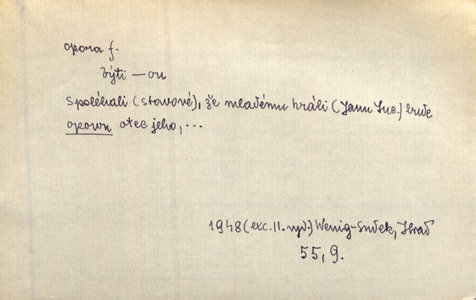 opora f.
býti —ou
Spoléhali (stavové), že mladému králi (Janu Luc.) bude
oporou otec jeho, ...
1948 (exc. 11. vyd.) Wenig-Sudek, Hrad
55, 9.